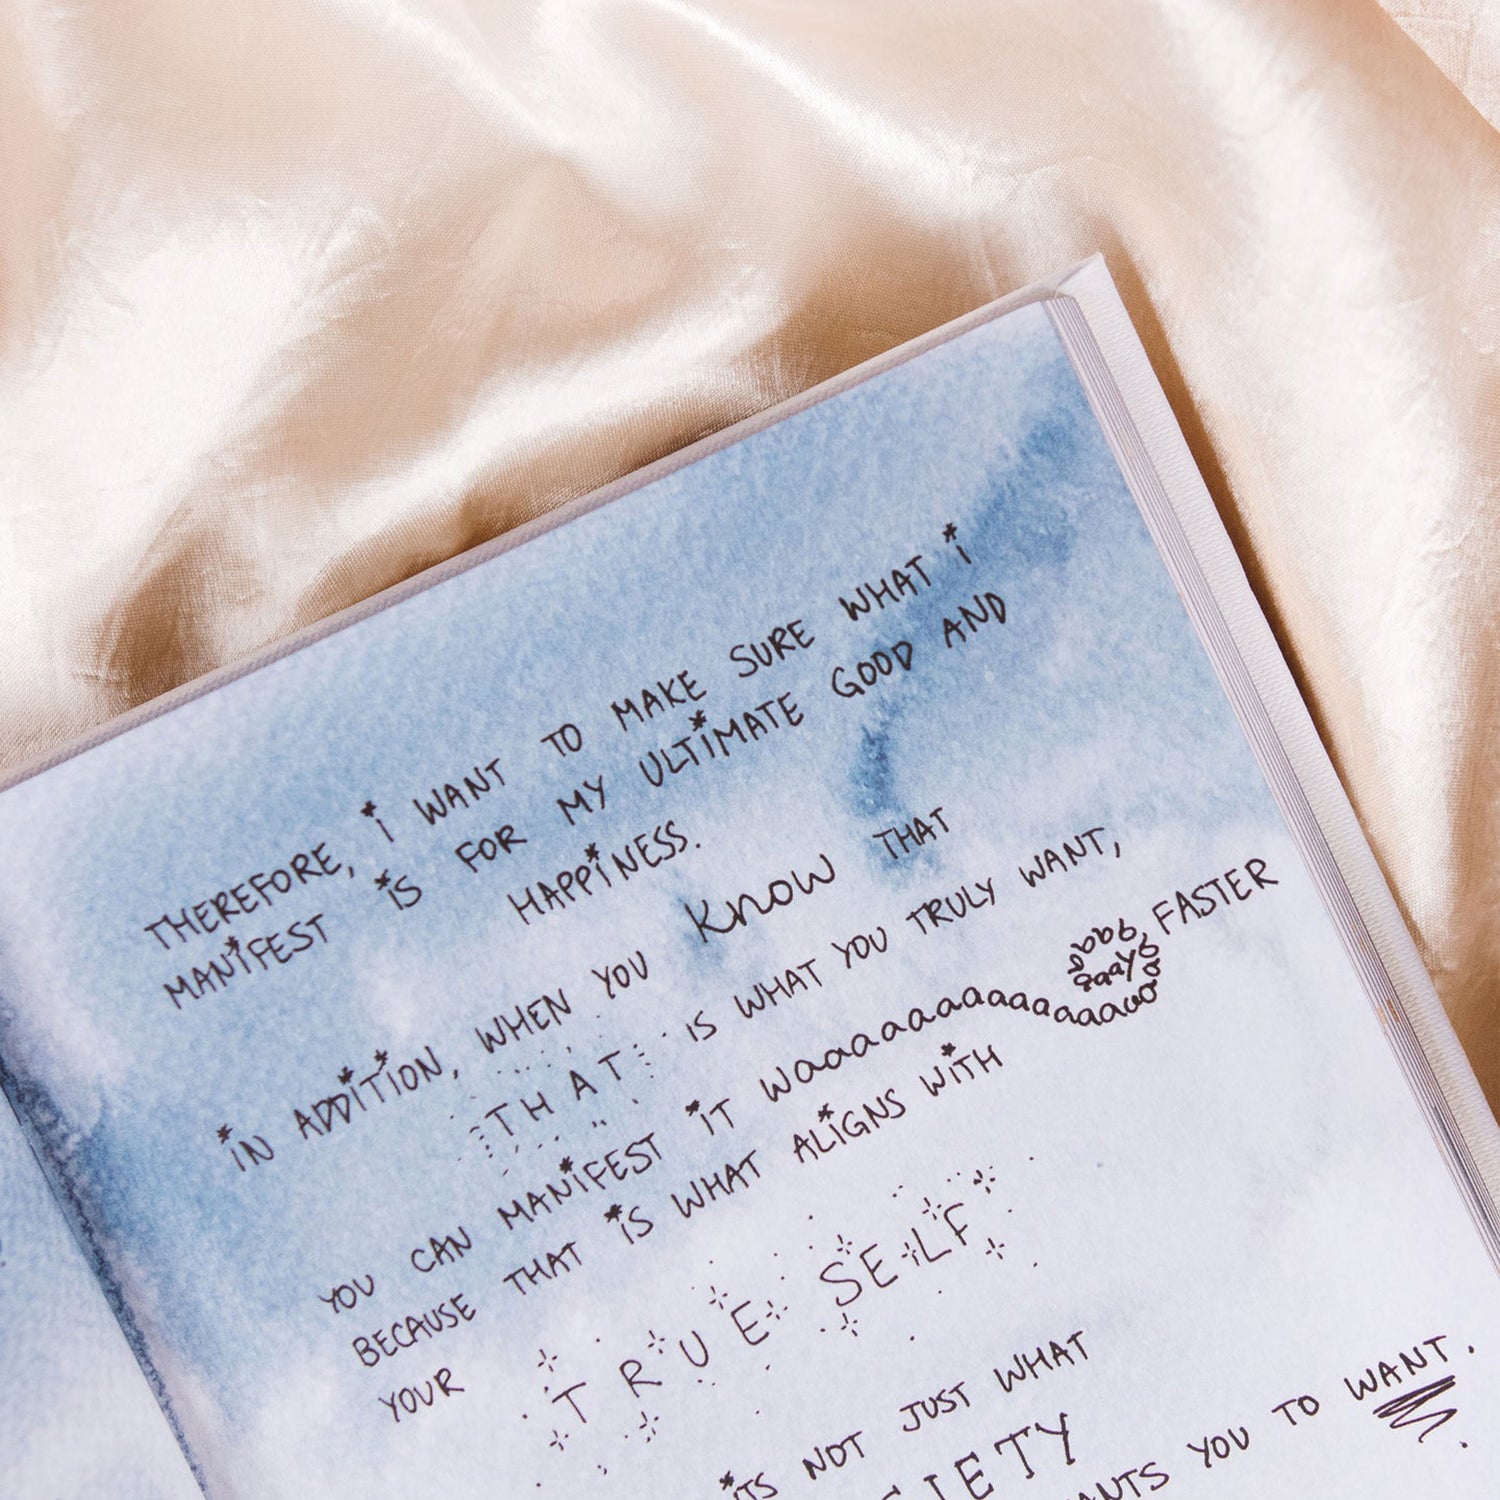 THEREFORE, i WANT TO MAKE SURE WHAT i
MANiFEST iS FOR MY ULTiMATE GOOD AND
HAPPiNESS.
iN ADDiTiON, WHEN YOU Know THAT
THAT IS WHAT YOU TRULY WANT,
YOU CAN MANiFEST iT FASTER
BECAUSE THAT iS WHAT ALiGNS WiTH
YOUR TRUE SELF
iTS NOT JUST WHAT
YOU TO WANT.